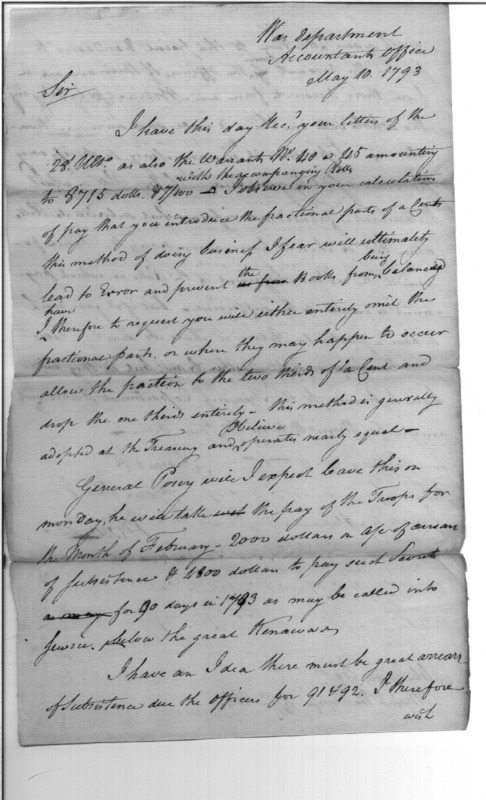 War department
Accountants Office
May 10. 1793
Sir
I have this day Recd. your letters of the
28 Ulto. as also the Warrants No. 40 a 45 amounting
with the accompanying Rolls
to 8715 dolls. 47/100 — I observe in your calculation
of pay that you introduce the fractional parts of a Cent
this method of doing business I fear will ultimately
lead to Error and prevent the Books from being balanced
have
I therefore to request you will either entirely omit the
fractional parts. or where they may happen to occur
allow the fraction to the two thirds of a Cent and
drop the one thirds entirely — this method is generally
adopted at the Treasury and I believe operates nearly equal —
General Posey will I expect leave this on
monday, he will take with the pay of the Troops for
the Month of February — 2000 dollars on a/c of arrears
of Subsistence & 4800 dollars to pay such Scouts
as may for 90 days in 1793 as may be called into
Service. below the great Kenawa
I have an Idea there must be great arrears
of Subsistence due the officers for 91 & 92. I therefore
wish